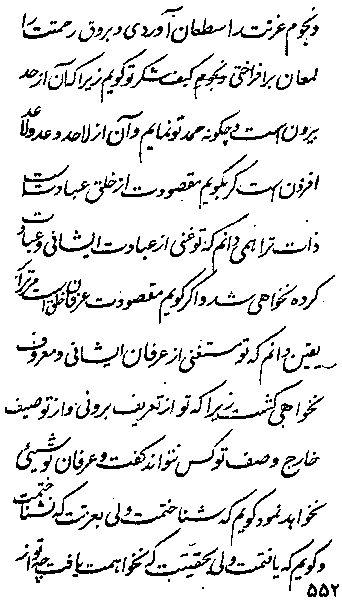 و نجوم عزتت را سطعان آوردی و بروق رحمتت را
لمعان برافراختی و نجوم کیف شکر تو گویم زیرا که آن از حد
بیرون است و چگونه حمد تو نمایم و آن از لاحد و عد ولا عد
افزون است گر بگویم مقصودت از خلق عبادت است
ذات ترا همی دانم که تو غنی از عبادت ایشانی و عبادت
کرده نخواهی شد و اگر گویم مقصودت عرفان خلق است مر ترا
یقین دانم که تو مستغنی از عرفان ایشانی و معروف
نخواهی گشت زیرا که تو از تعریف برونی و از توصیف
خارج وصف تو کس نتواند گفت و عرفان تو شیئی
نخواهد نمود گویم که شناختمت ولی بعزتت که نشناختمت
و گویم که یافتمت ولی بحقیقتت که نخواهمت یافت چه تو آنه
۵۵۲